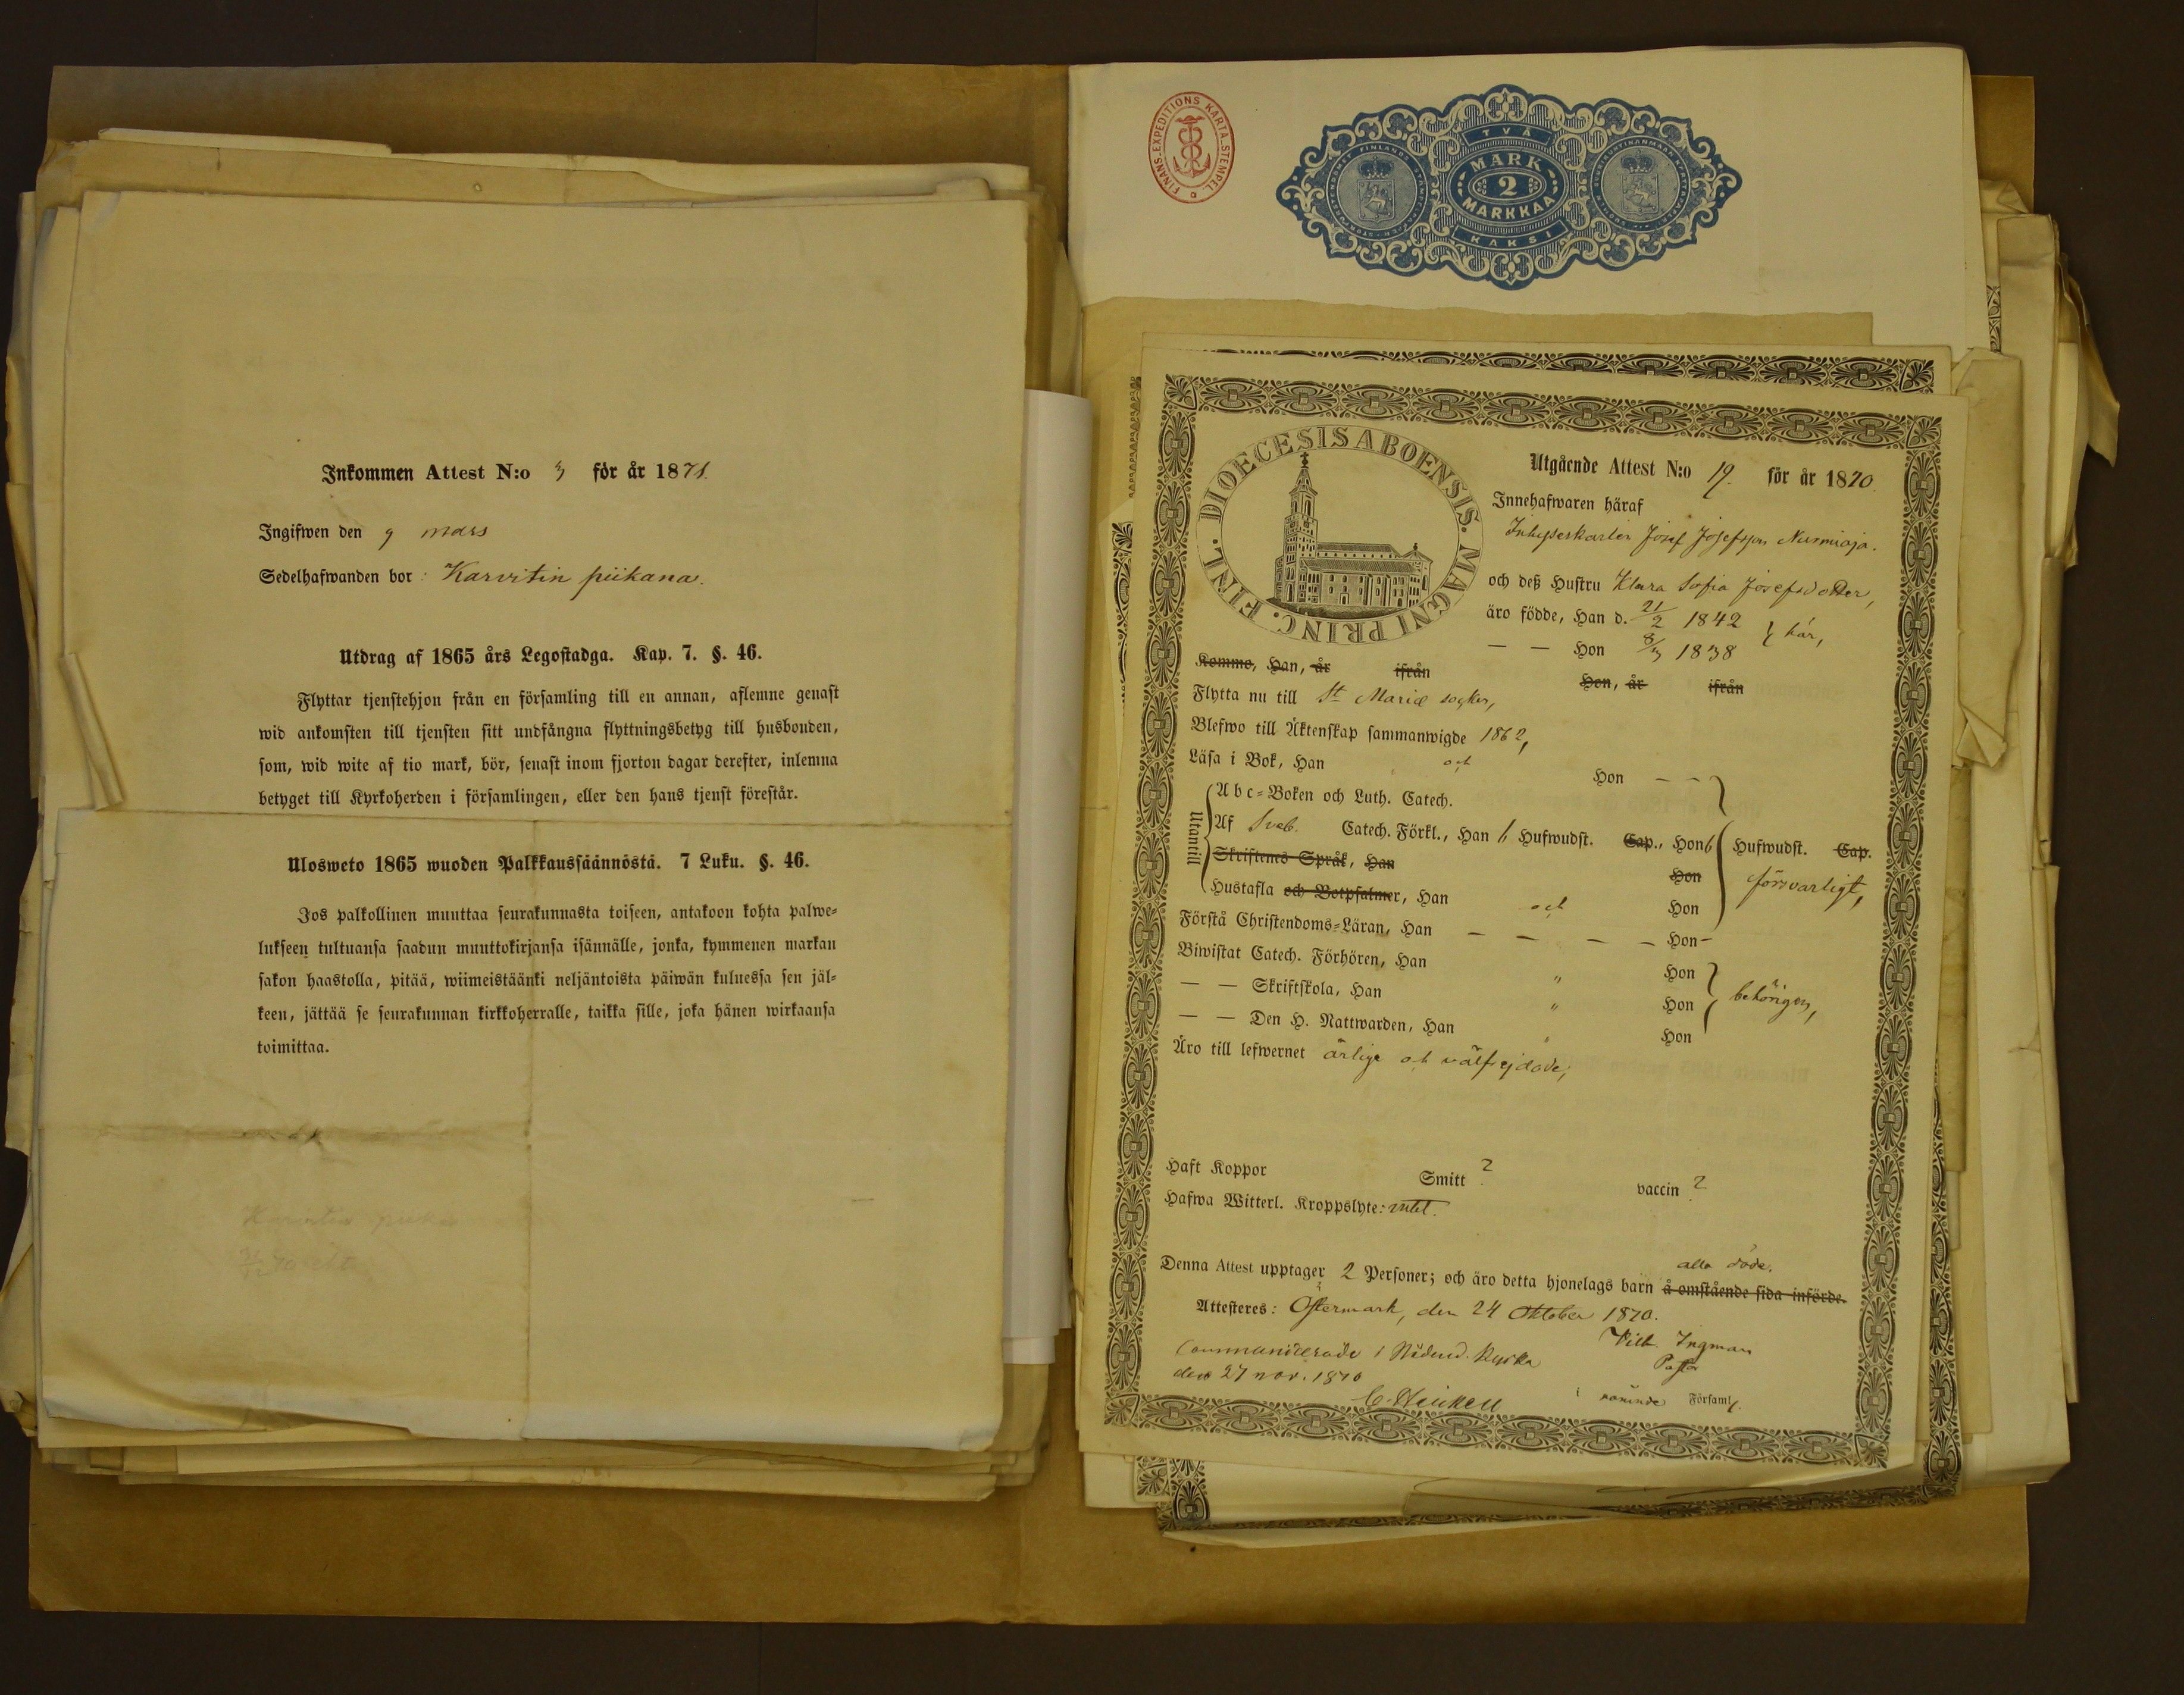 Inkommen Attest N:o 3 för år 1871.
Ingifwen den 9 mars
Sedelhafwanden bor: Karvitin piikana.
Utdrag af 1865 års Legostadga. Kap. 7. §. 46.
Flyttar tjenstehjon från en församling till en annan, aflemne genast
wid ankomsten till tjensten sitt undfångna flyttningsbetyg till husbonden,
som, wid wite af tio mark, bör, senast inom fjorton dagar derefter, inlemna
betyget till Kyrkoherden i församlingen, eller den hans tjenst förestår.
Ulosweto 1865 wuoden Palkkaussäännöstä. 7 Luku. §. 46.
Jos palkollinen muuttaa seurakunnasta toiseen, antakoon kohta palwe-
lukseen tultuansa saadun muuttokirjansa isännälle, jonka, kymmenen markan
sakon haastolla, pitää, wiimeistäänki neljäntoista päiwän kuluessa sen jäl-
keen, jättää se seurakunnan kirkkoherralle, taikka sille, joka hänen wirkaansa
toimittaa.
FINANS-EXPEDITIONS KARTA STEMPEL
TVÅ
MARK
2
MARKKAA
KAKSI
DIOECESIS ABOENSIS. MAGNI PRINC. FINL.
Utgående Attest N:o 19. för år 1870.
Innehafwaren häraf
Inhyseskarlen Josef Josefsson Nurmioja.
och deß Hustru Klara Sofia Josefsdotter,
äro födde, Han d. 21/2 1842 } här,
— — Hon 8/3 1838
Komme, Han, år ifrån Hon, år ifrån
Flytta nu till St Mariæ socken,
Blefwo till Äktenskap sammanwigde 1862,
Läsa i Bok, Han och Hon — —
Utantill
Abc-Boken och Luth. Catech.
Af Sveb. Catech. Förkl., Han 6 Hufwudst. Cap., Hon 6 Hufwudst. Cap.
Skriftenes Språk, Han Hon försvarligt,
Hustafla och Botpsalmer, Han och Hon
Förstå Christendoms-Läran, Han — — — — Hon —
Biwistat Catech. Förhören, Han " Hon
— — Skriftskola, Han " Hon behörigen,
— — Den H. Nattwarden, Han " Hon
Äro till lefwernet ärliga och välfrejdade,
Haft Koppor Smitt ? vaccin ?
Hafwa Witterl. Kroppslyte: intet.
alla döda.
Denna Attest upptager 2 Personer; och äro detta hjonelags barn å omstående sida införde.
Attesteres: Östermark, den 24 Oktober 1870.
Vilh. Ingman
Pastor
Communicerade i Kyrka
den 27 nov. 1870
i nämnde Församl.